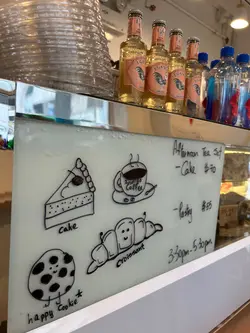 Afternoon Tea Set
-Cake $70
coffee
Cake
-Pastry $55
Croissant
happy Cookie*
3:30pm-5:30pm